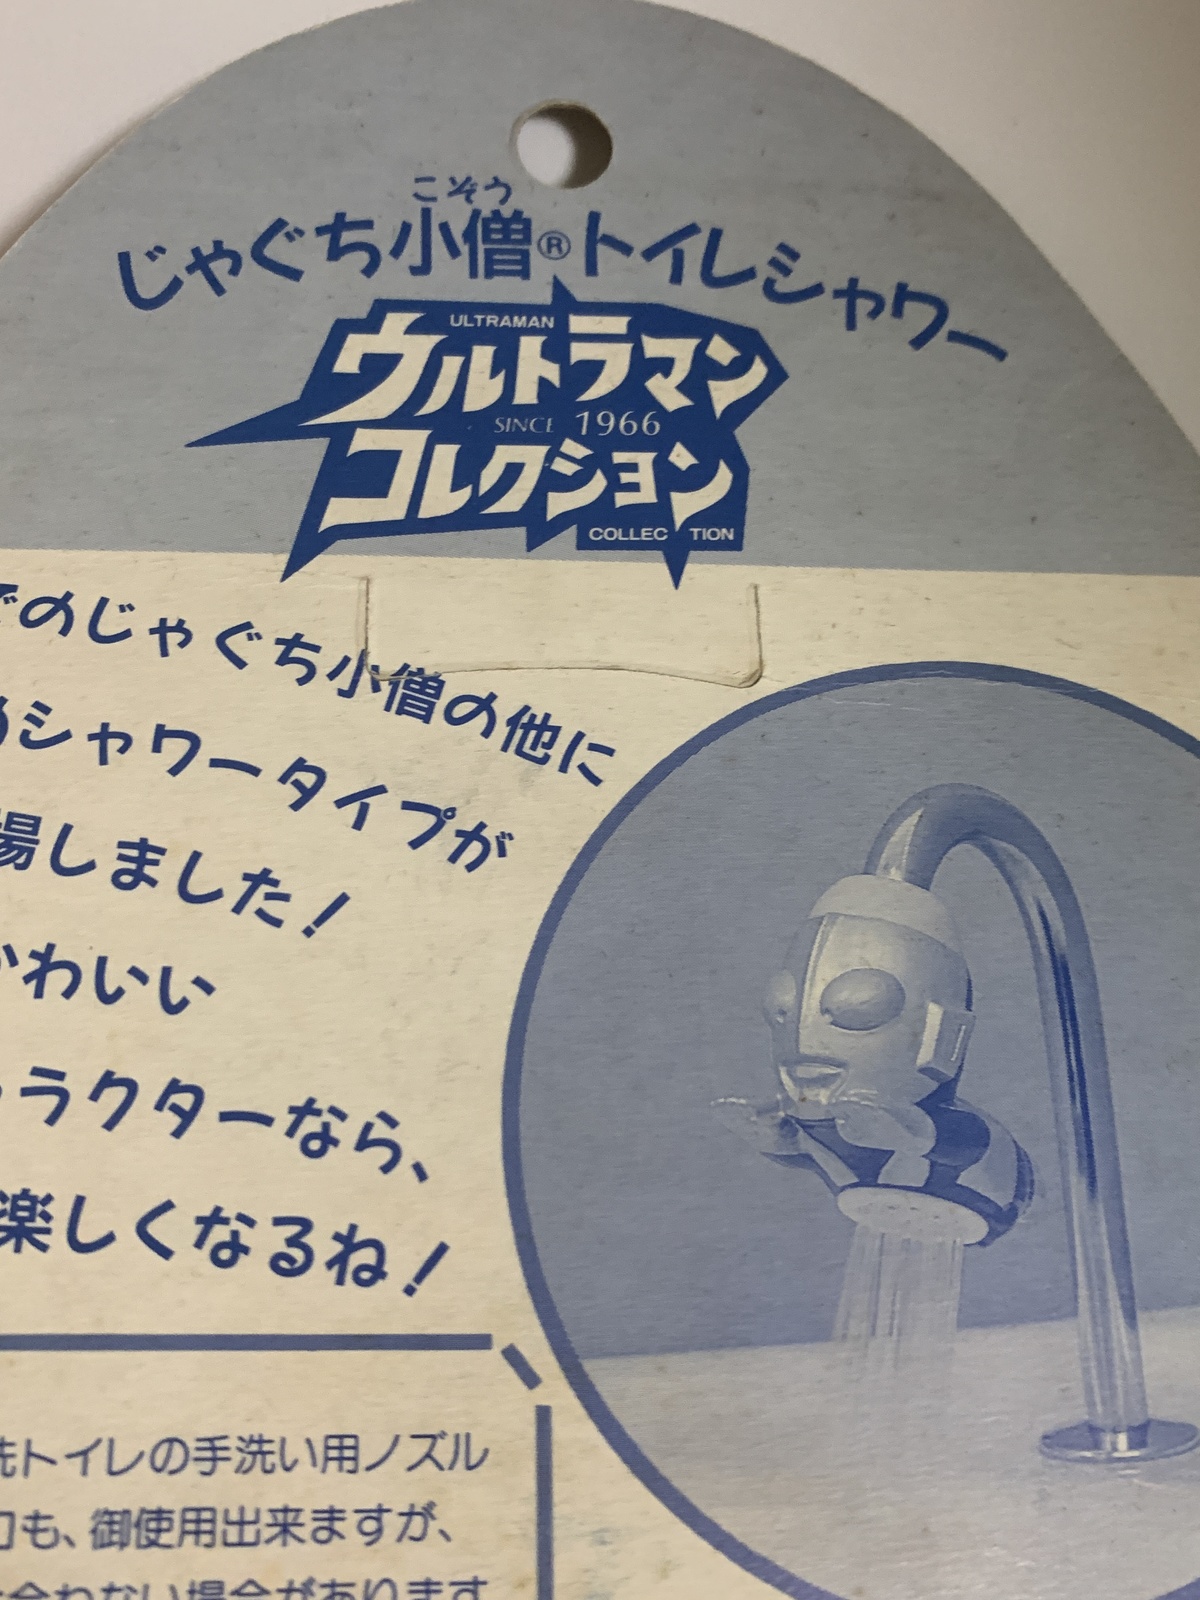 こぞう
じゃぐち小僧®トイレシャワー
ULTRAMAN
ウルトラマン
SINCE 1966
コレクション
COLLECTION
でのじゃぐち小僧の他に
シャワータイプが
場しました！
かわいい
ラクターなら、
楽しくなるね！
洗トイレの手洗い用ノズル
も、御使用出来ますが、
合わない場合があります